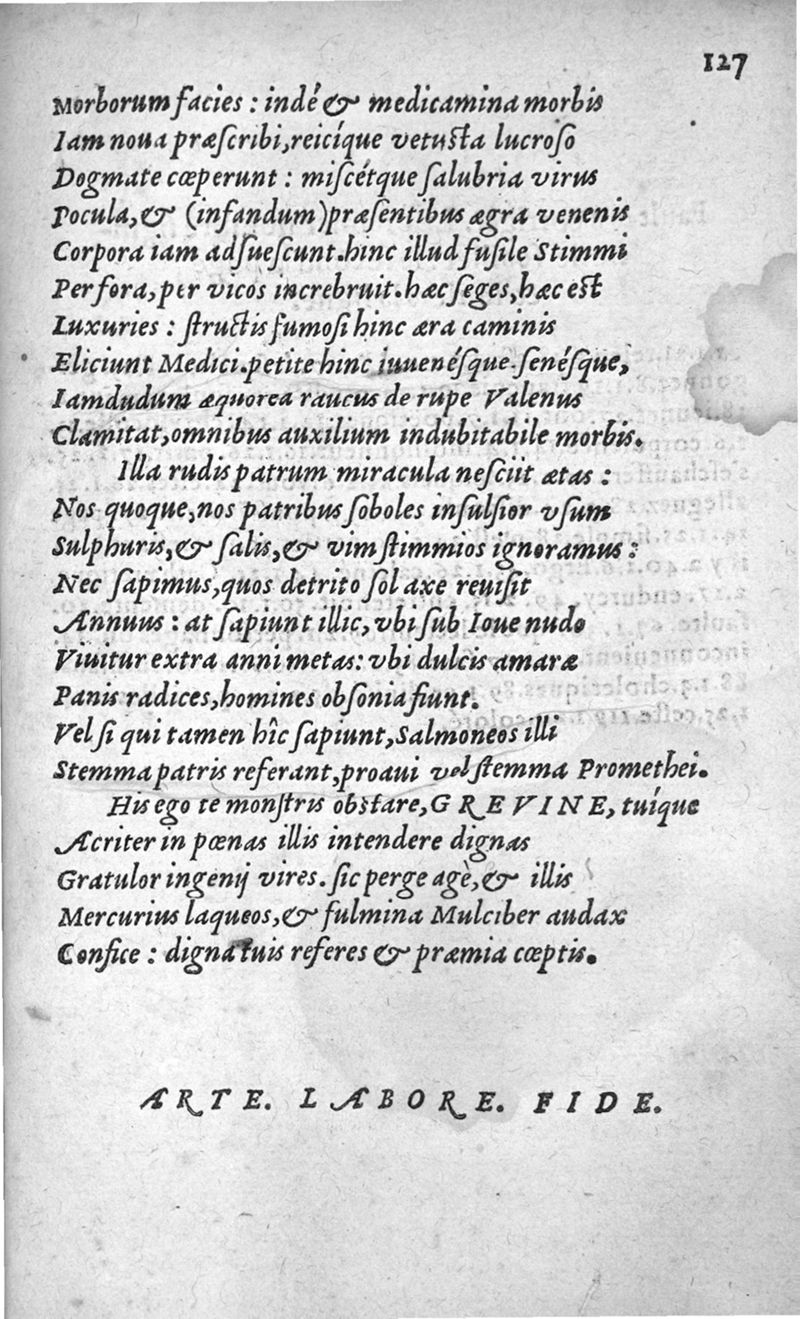 127
Morborum facies : indé & medicamina morbis
Iam noua præſcribi,reicíque vetuſta lucroſo
Dogmate cœperunt : miſcétque ſalubria virus
Pocula,& (infandum)præſentibus ægra venenis
Corpora iam adſueſcunt.hinc illud fuſile Stimmi
Per fora,per vicos increbruit.hæc ſeges,hæc eſt
Luxuries : ſtructis fumoſi hinc æra caminis
Eliciunt Medici.petite hinc iuuenéſque.ſenéſque,
Iamdudum æquorea raucus de rupe Valenus
Clamitat,omnibus auxilium indubitabile morbis.
Illa rudis patrum miracula neſciit ætas :
Nos quoque,nos patribus ſoboles inſulſior vſum
Sulphuris,& ſalis,& vim ſtimmios ignoramus :
Nec ſapimus,quos detrito ſol axe reuiſit
Annuus : at ſapiunt illic,vbi ſub Ioue nudo
Viuitur extra anni metas: vbi dulcis amaræ
Panis radices,homines obſonia fiunt.
Vel ſi qui tamen hîc ſapiunt,Salmoneos illi
Stemma patris referant,proaui vel ſtemma Promethei.
His ego te monſtris obſtare,GREVINE, tuíque
Acriter in pœnas illis intendere dignas
Gratulor ingenij vires. ſic perge agè,& illis
Mercurius laqueos,& fulmina Mulciber audax
Confice : digna tuis referes & præmia cœptis.
ARTE. LABORE. FIDE.